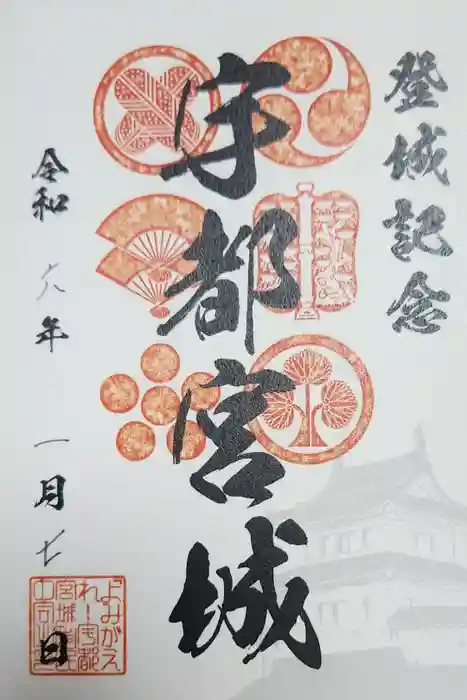 登城記念
宇都宮城
令和六年一月七日
よみがえ
れ!宇都
宮城